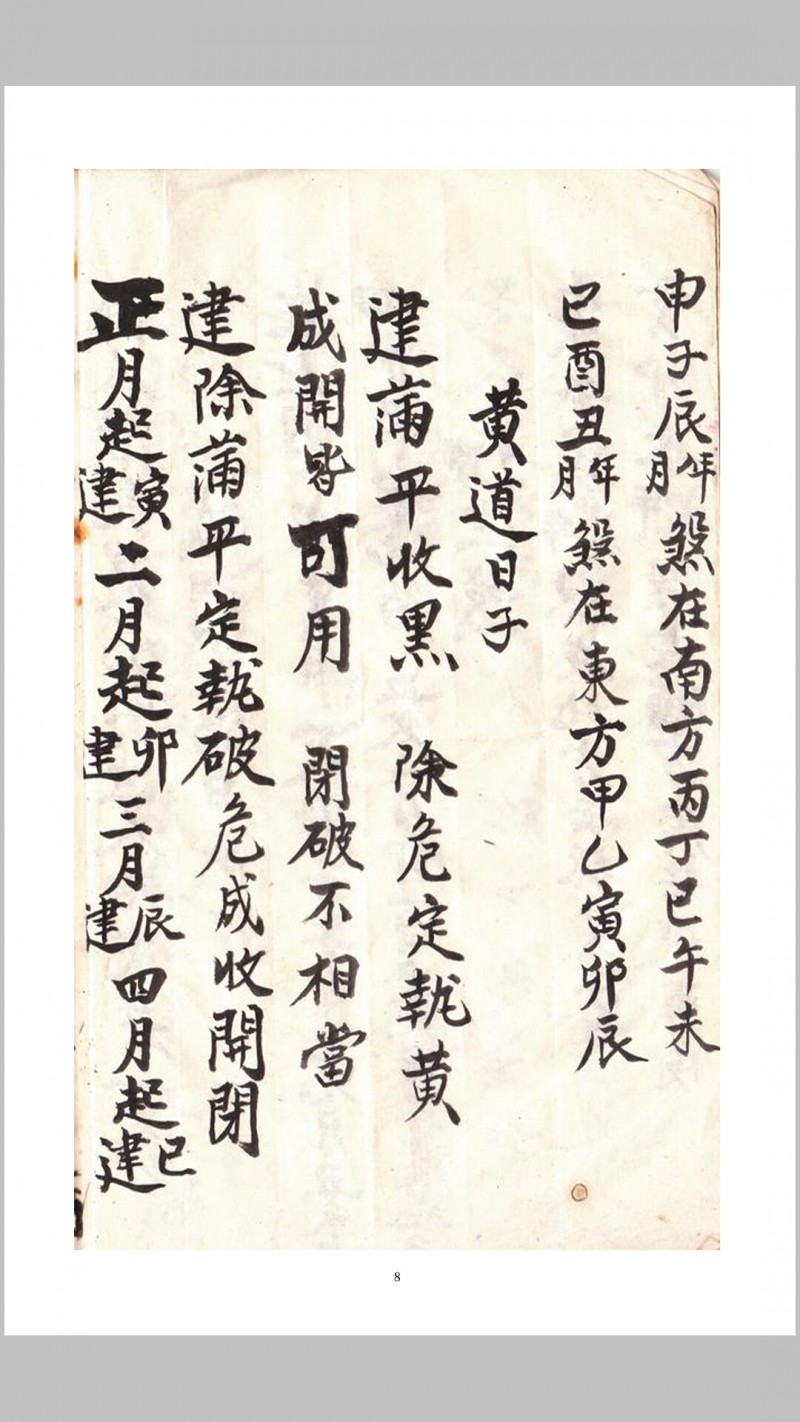 申子辰年月煞在南方丙丁巳午未
巳酉丑年月煞在東方甲乙寅卯辰
黄道日子
建蒲平收黑 除危定執黄
成開皆可用 閉破不相當
建除蒲平定執破危成收開閉
正月起寅建二月起卯建三月辰建四月起巳建
8